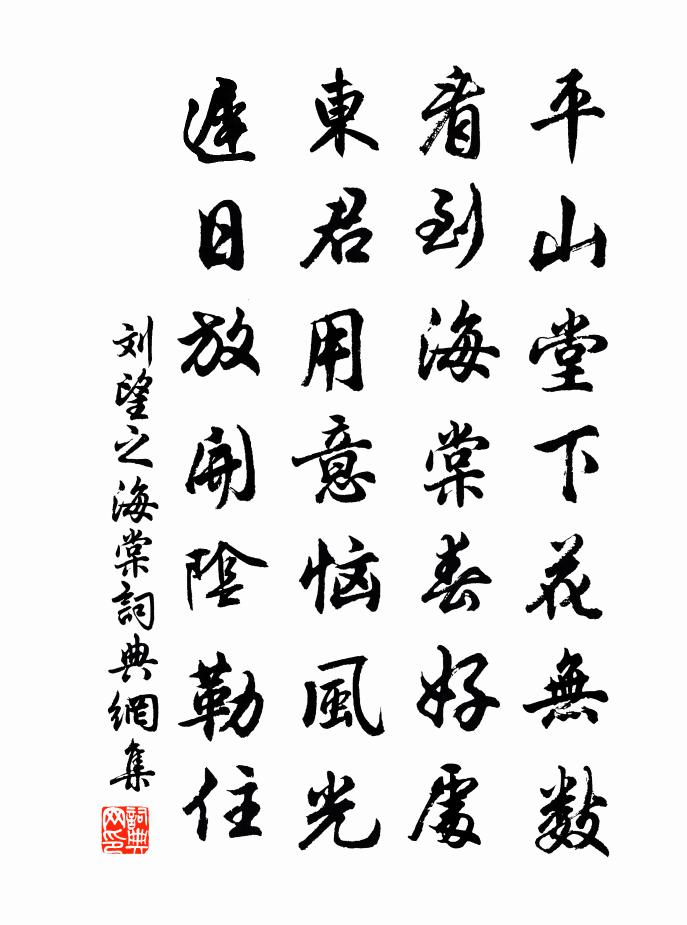 平山堂下花無數
看到海棠春好處
東君用意惱風光
遲日放開陰勒住
刘望之海棠詞典網集
詞典网印